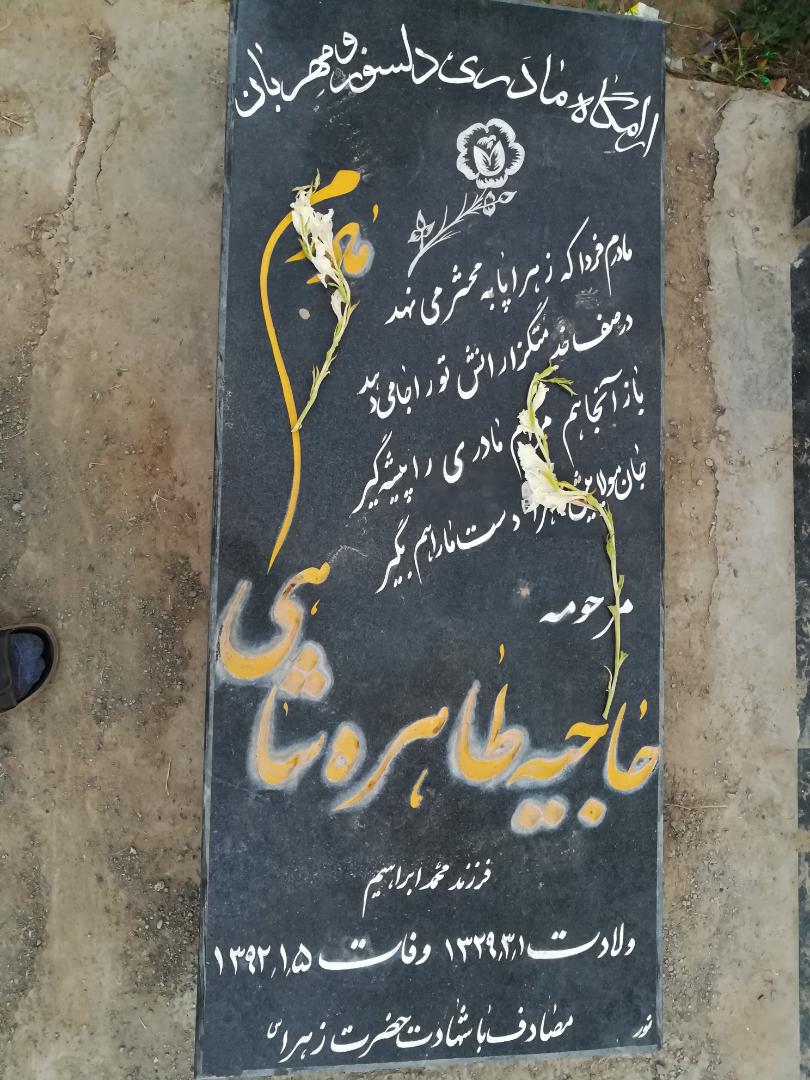 آرامگاه مادری دلسوز و مهربان
مادرم
مادرم فردا که زهرا پا به محشر می نهد
در صف خدمتگزارانش تو را جا می دهد
باز آنجا هم مادری را پیشه گیر
جان مولایش دست ما را هم بگیر
مرحومه
حاجیه طاهره شاهی
فرزند محمد ابراهیم
ولادت ۱۳۲۹,۳,۱ وفات ۱۳۹۲,۱,۵
مصادف با شهادت حضرت زهرا س
نور